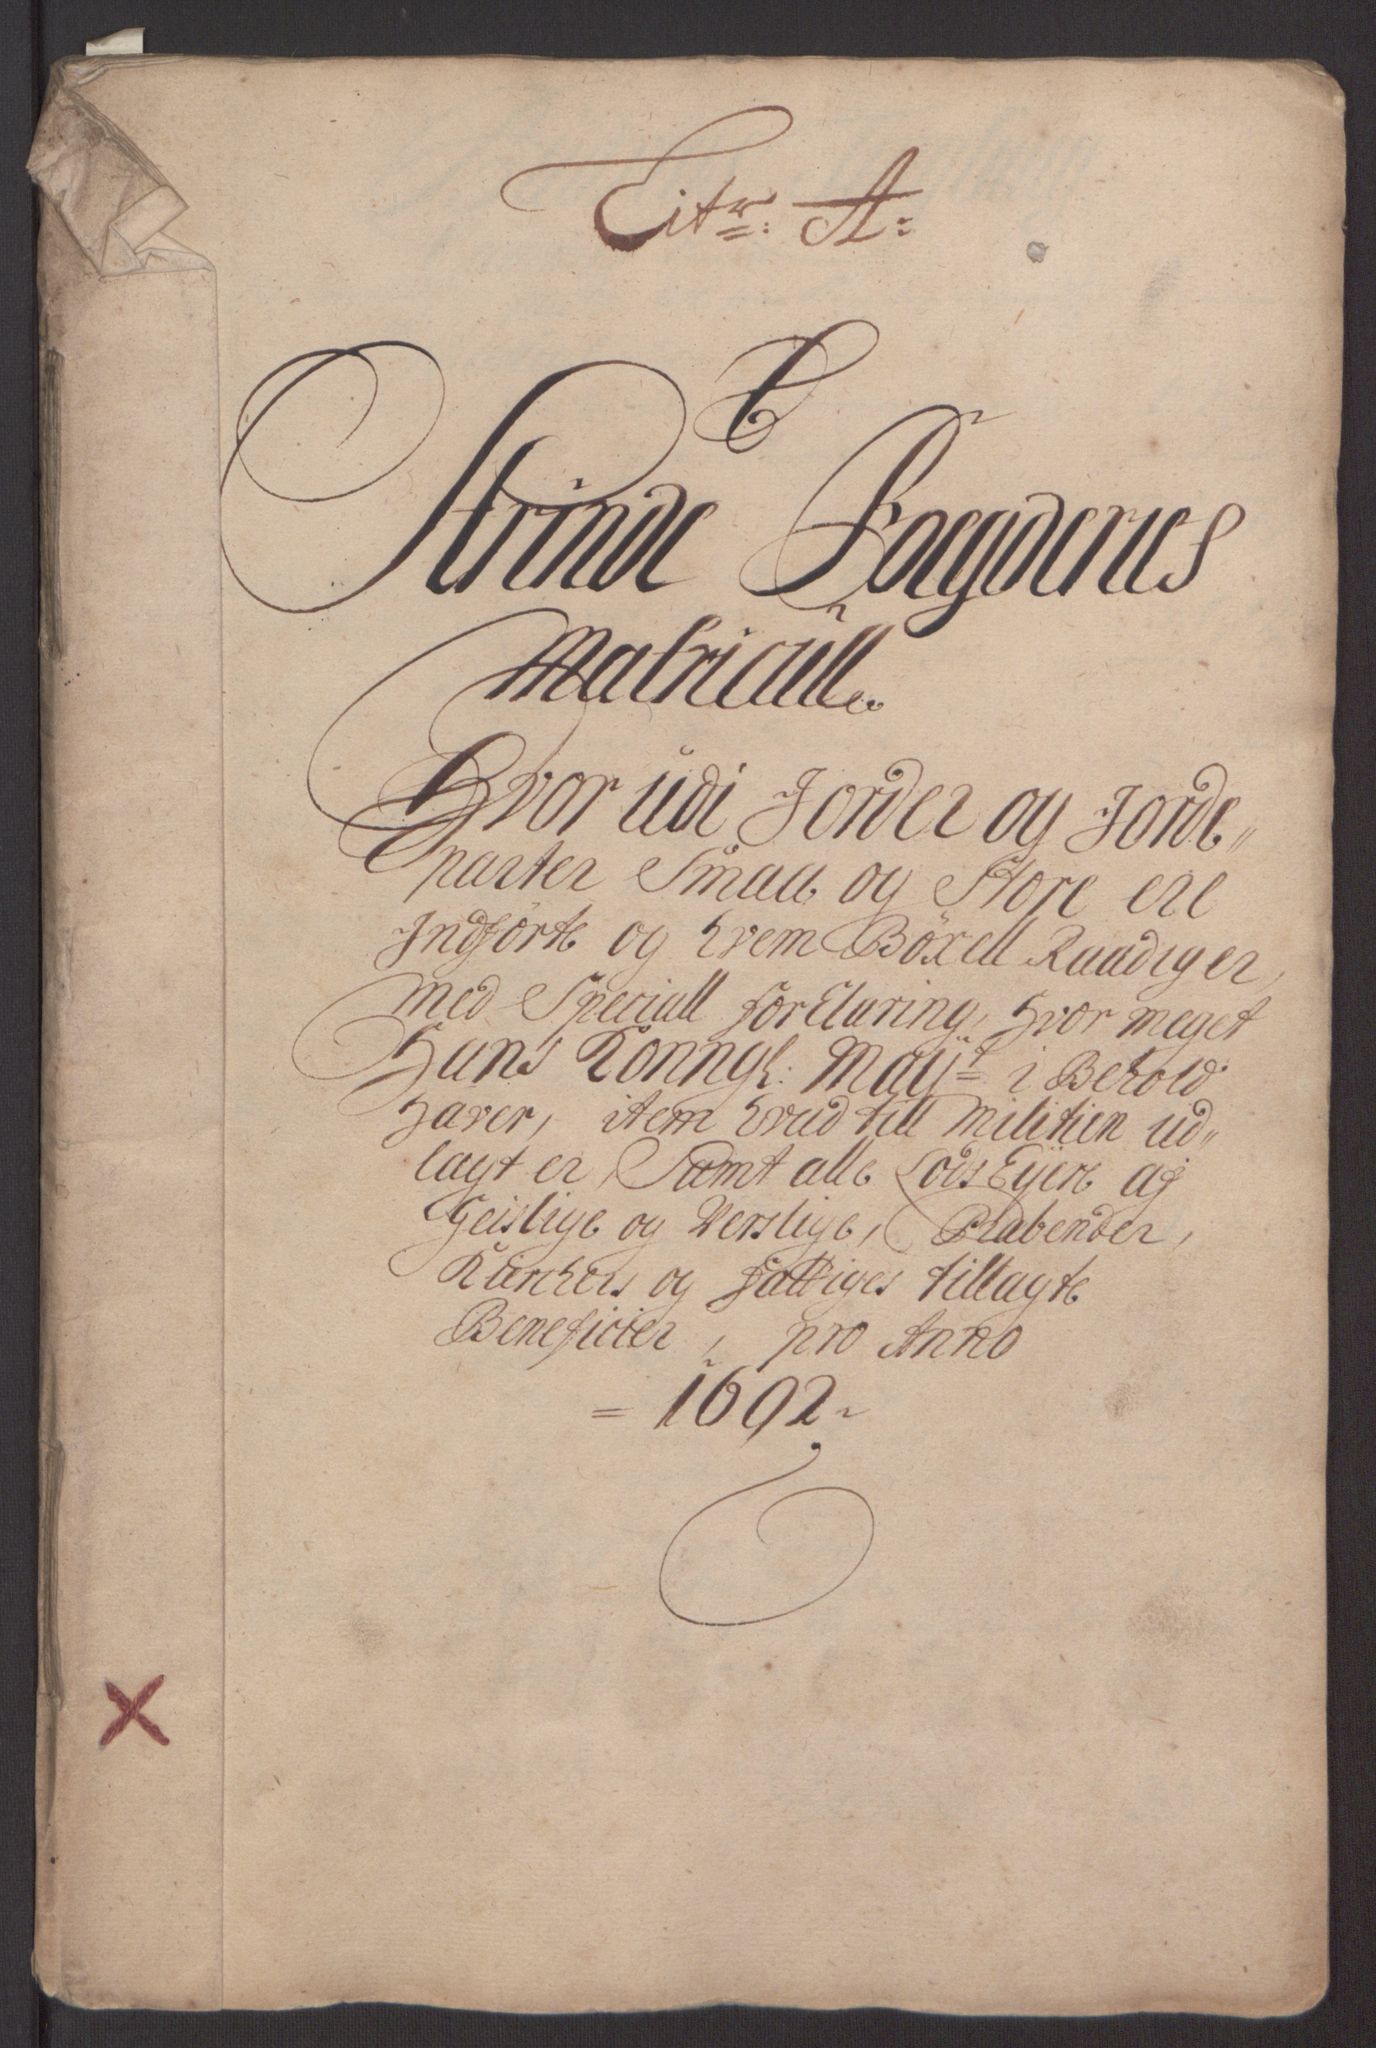 Litr: A:
Strinde Foegderies
Matricull
Hvor udi Jorder og Jorde„
parter Smaa og Store ere
Indførte og hvem Böxell Raadig er,
med Speciall forklaring, hvor meget
Hans Konngl: Mayt i Behold
haver, item hvad till Militien ud„
lagt er, Samt alle Lods Eyere af
Geistlige og Verslige, Præbender,
Kirchers og fattiges tillagte
Beneficier, pro Anno
= 1692